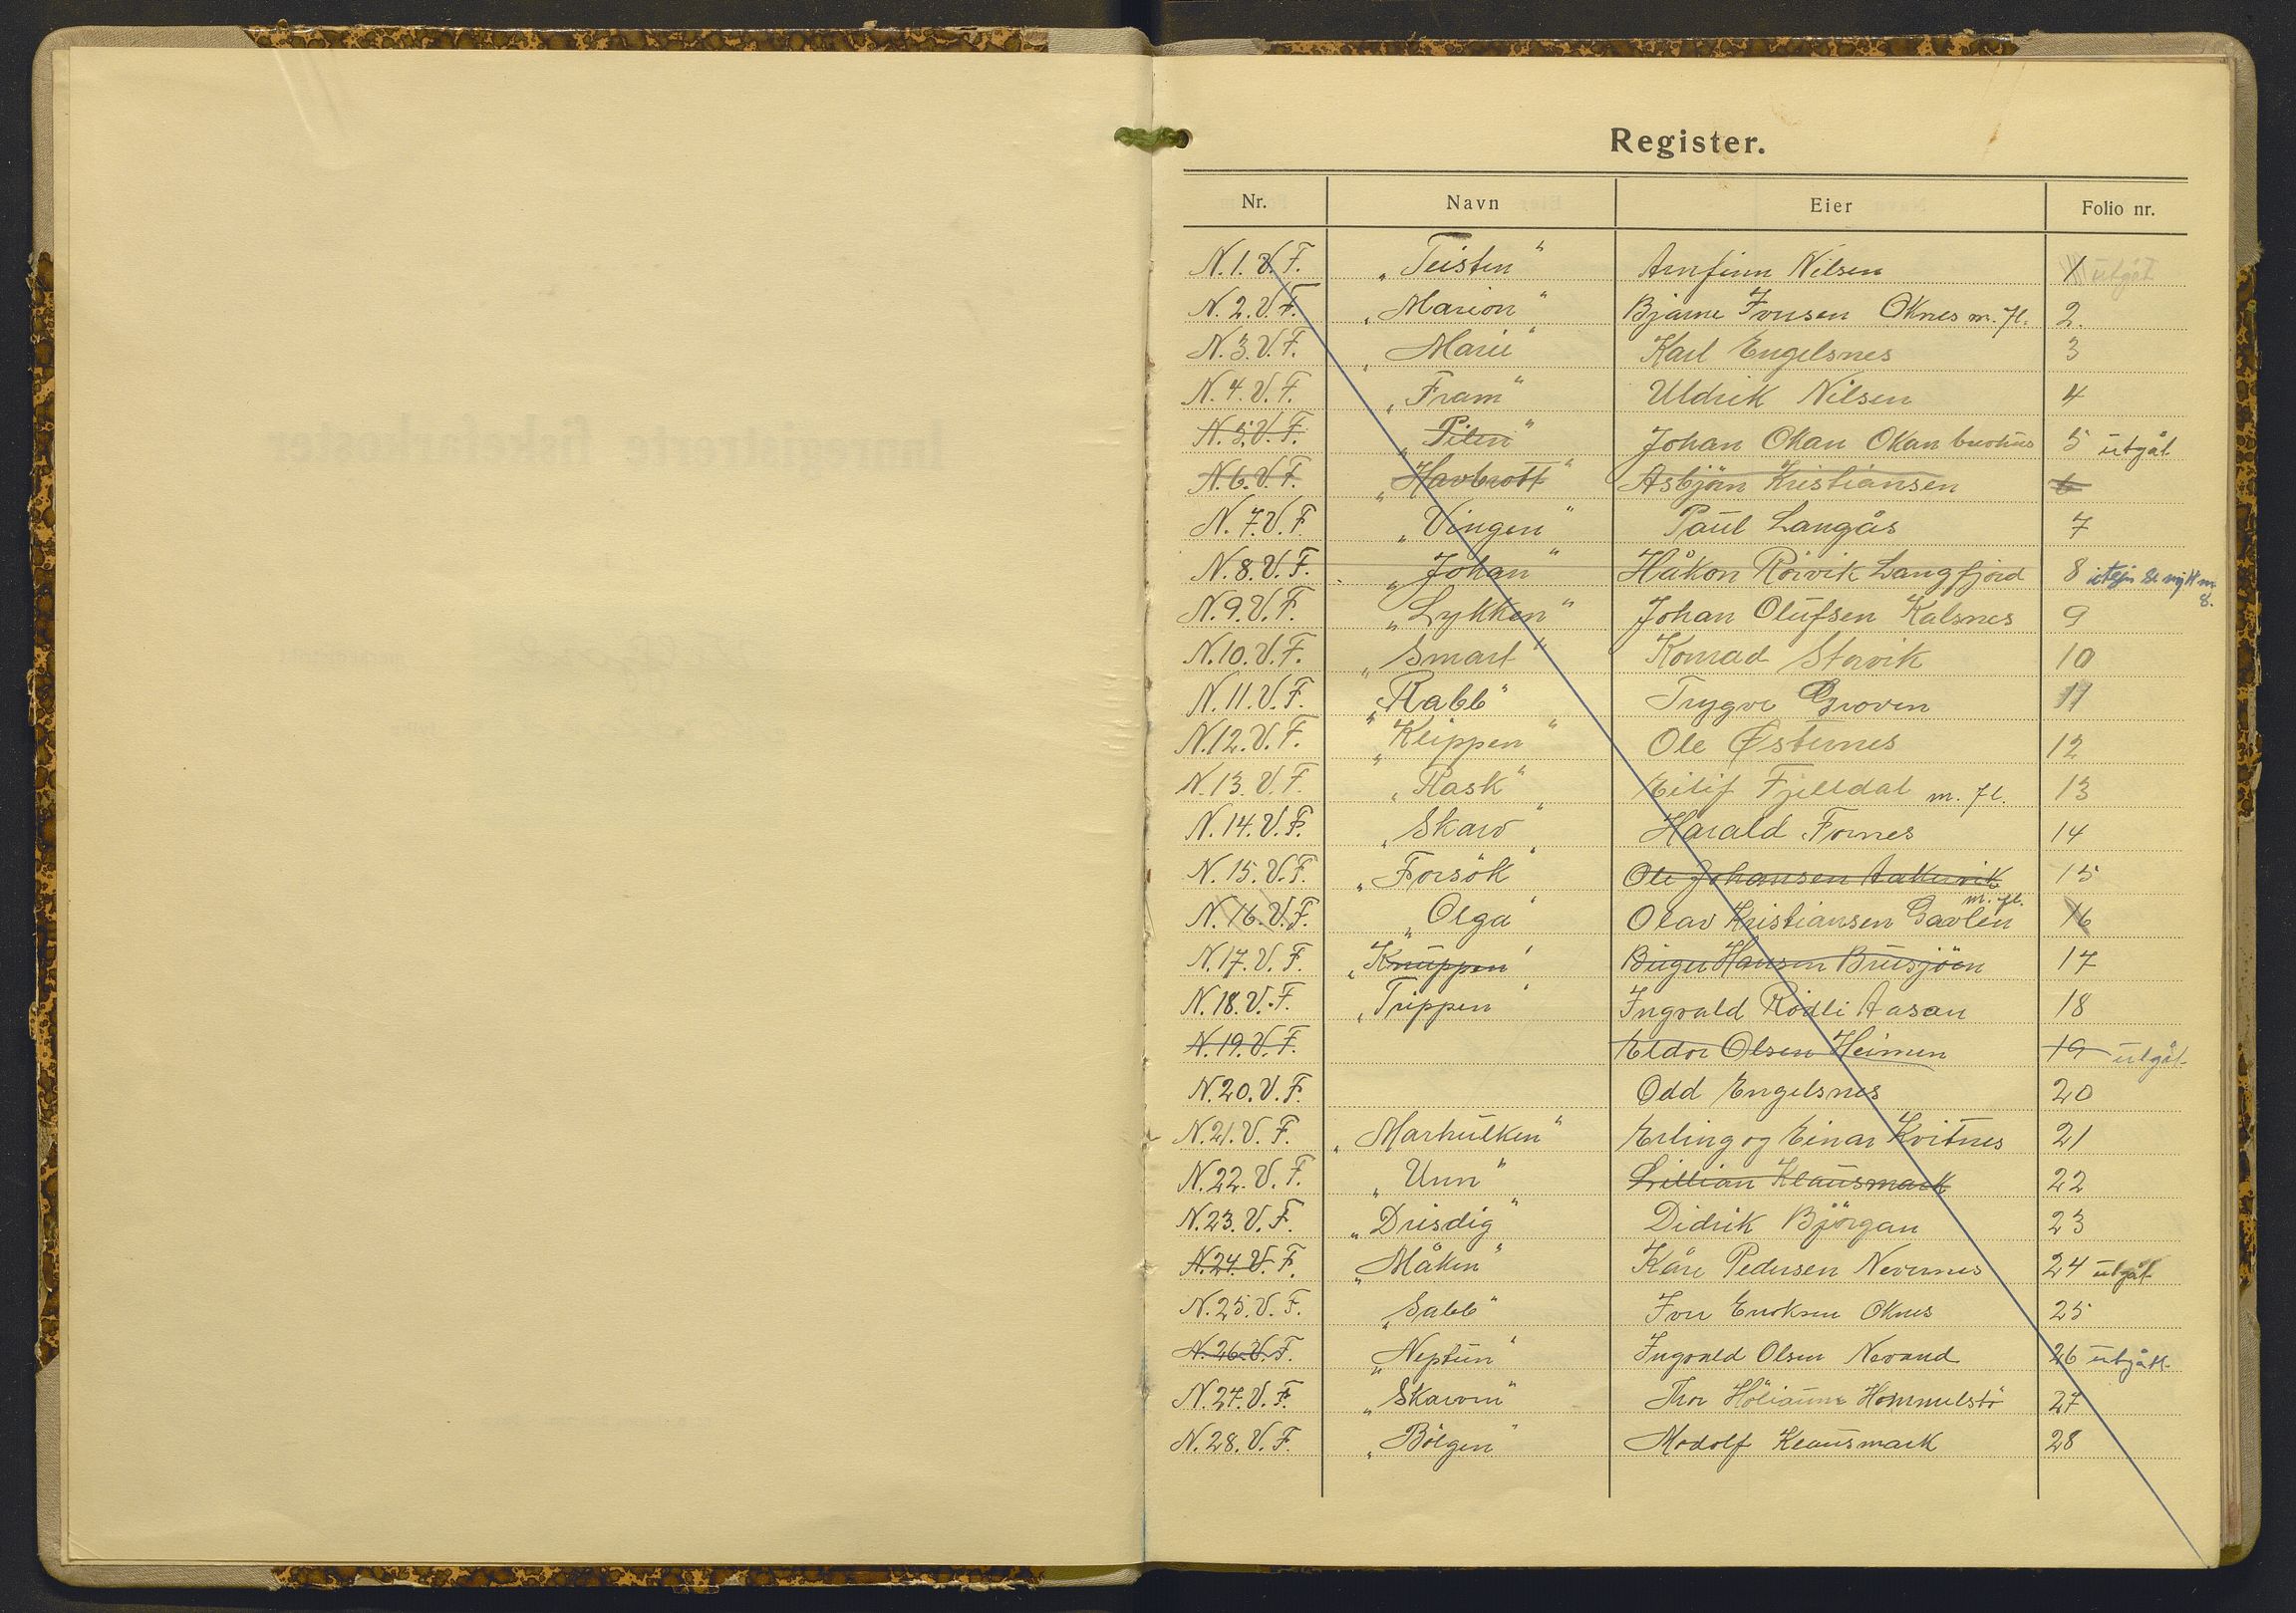 Register.
Nr. Navn Eier Folio nr.
N. 1. V. F. „Teisten“ Arnfinn Nilsen 1 utgåt
N. 2. V. F. „Marion“ Bjarne Iversen Oknes m. fl. 2.
N. 3. V. F. „Marie“ Karl Engelsnes 3
N. 4. V. F. „Fram“ Uldrik Nilsen 4
N. 5. V. F. „Pilen“ Johan Okan Okan 5 utgåt
N. 6. V. F. „Havbrott“ Asbjörn Kristiansen 6
N. 7. V. F. „Vingen“ Paul Langås 7
N. 8. V. F. „Johan“ Håkon Rörvik Langfjord 8 se nytt nr. 8.
N. 9. V. F. „Lykken“ Johan Olufsen Kalsnes 9
N. 10. V. F. „Smart“ Konrad Storvik 10
N. 11. V. F. „Rabb“ Trygve Groven 11
N. 12. V. F. „Klippen“ Ole Østernes 12
N. 13. V. F. „Rask“ Eilif Fjelldal m. fl. 13
N. 14. V. F. „Skarv“ Harald Fornes 14
N. 15. V. F. „Forsök“ Ole Johansen Aakervik 15
N. 16. V. F. „Olga“ Olav Kristiansen Gavlen m. fl. 16
N. 17. V. F. „Knuppen“ Birger Hansen Brusjöen 17
N. 18. V. F. „Trippen“ Ingvald Rödli Aasan 18
N. 19. V. F. Eldor Olsen Heimen 19 utgåt
N. 20. V. F. Odd Engelsnes 20
N. 21. V. F. „Marhulken“ Erling og Einar Kvitnes 21
N. 22. V. F. „Unn“ Lillian Klausmark 22
N. 23. V. F. „Drisdig“ Didrik Björgan 23
N. 24. V. F. „Måken“ Kåre Pedersen Nevernes 24 utgåt
N. 25. V. F. „Sabb“ Iver Eriksen Oknes 25
N. 26. V. F. „Neptun“ Ingvald Olsen Nevand 26 utgått
N. 27. V. F. „Skarven“ Thor Hommelstö 27
N. 28. V. F. „Bölgen“ Modolf Klausmark 28